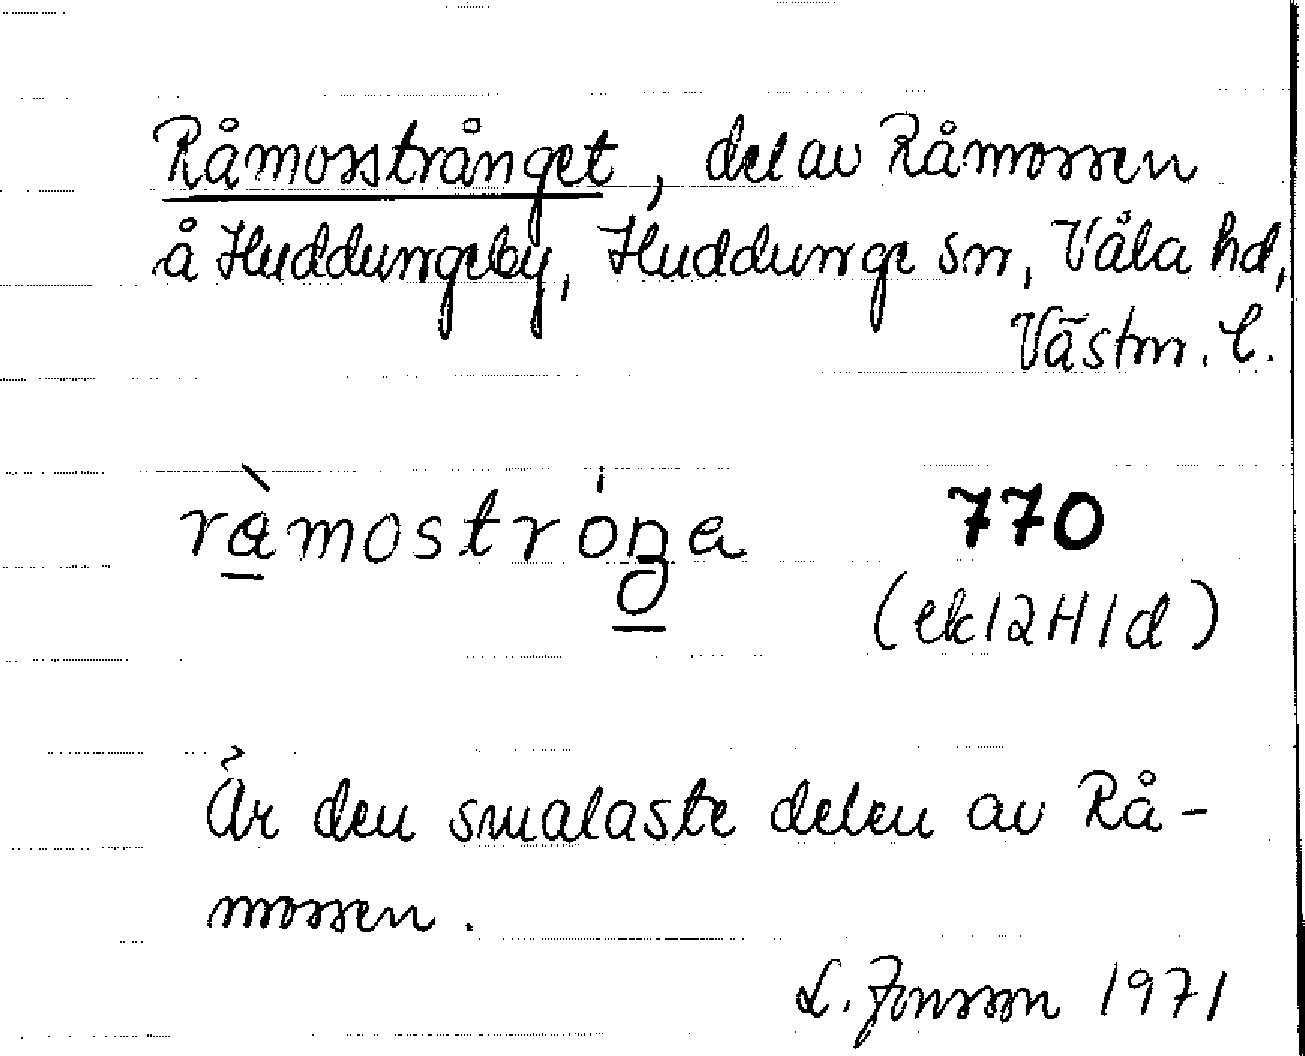 Råmosstrånget, del av Råmossen
å Huddungeby, Huddunge sn, Våla hd,
Västm. l.
ràmostróŋa
770
(ek 12H1d)
Är den smalaste delen av Rå-
mossen.
L. Jonsson 1971